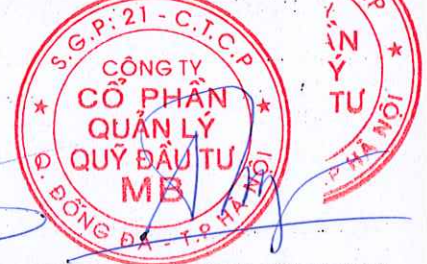 S.G.P: 21 - C.T.C.P
CÔNG TY
CỔ PHẦN
QUẢN LÝ
QUỸ ĐẦU TƯ
MB
Q. ĐỐNG ĐA - T.P HÀ NỘI
N
Ý
TƯ
P HÀ NỘI